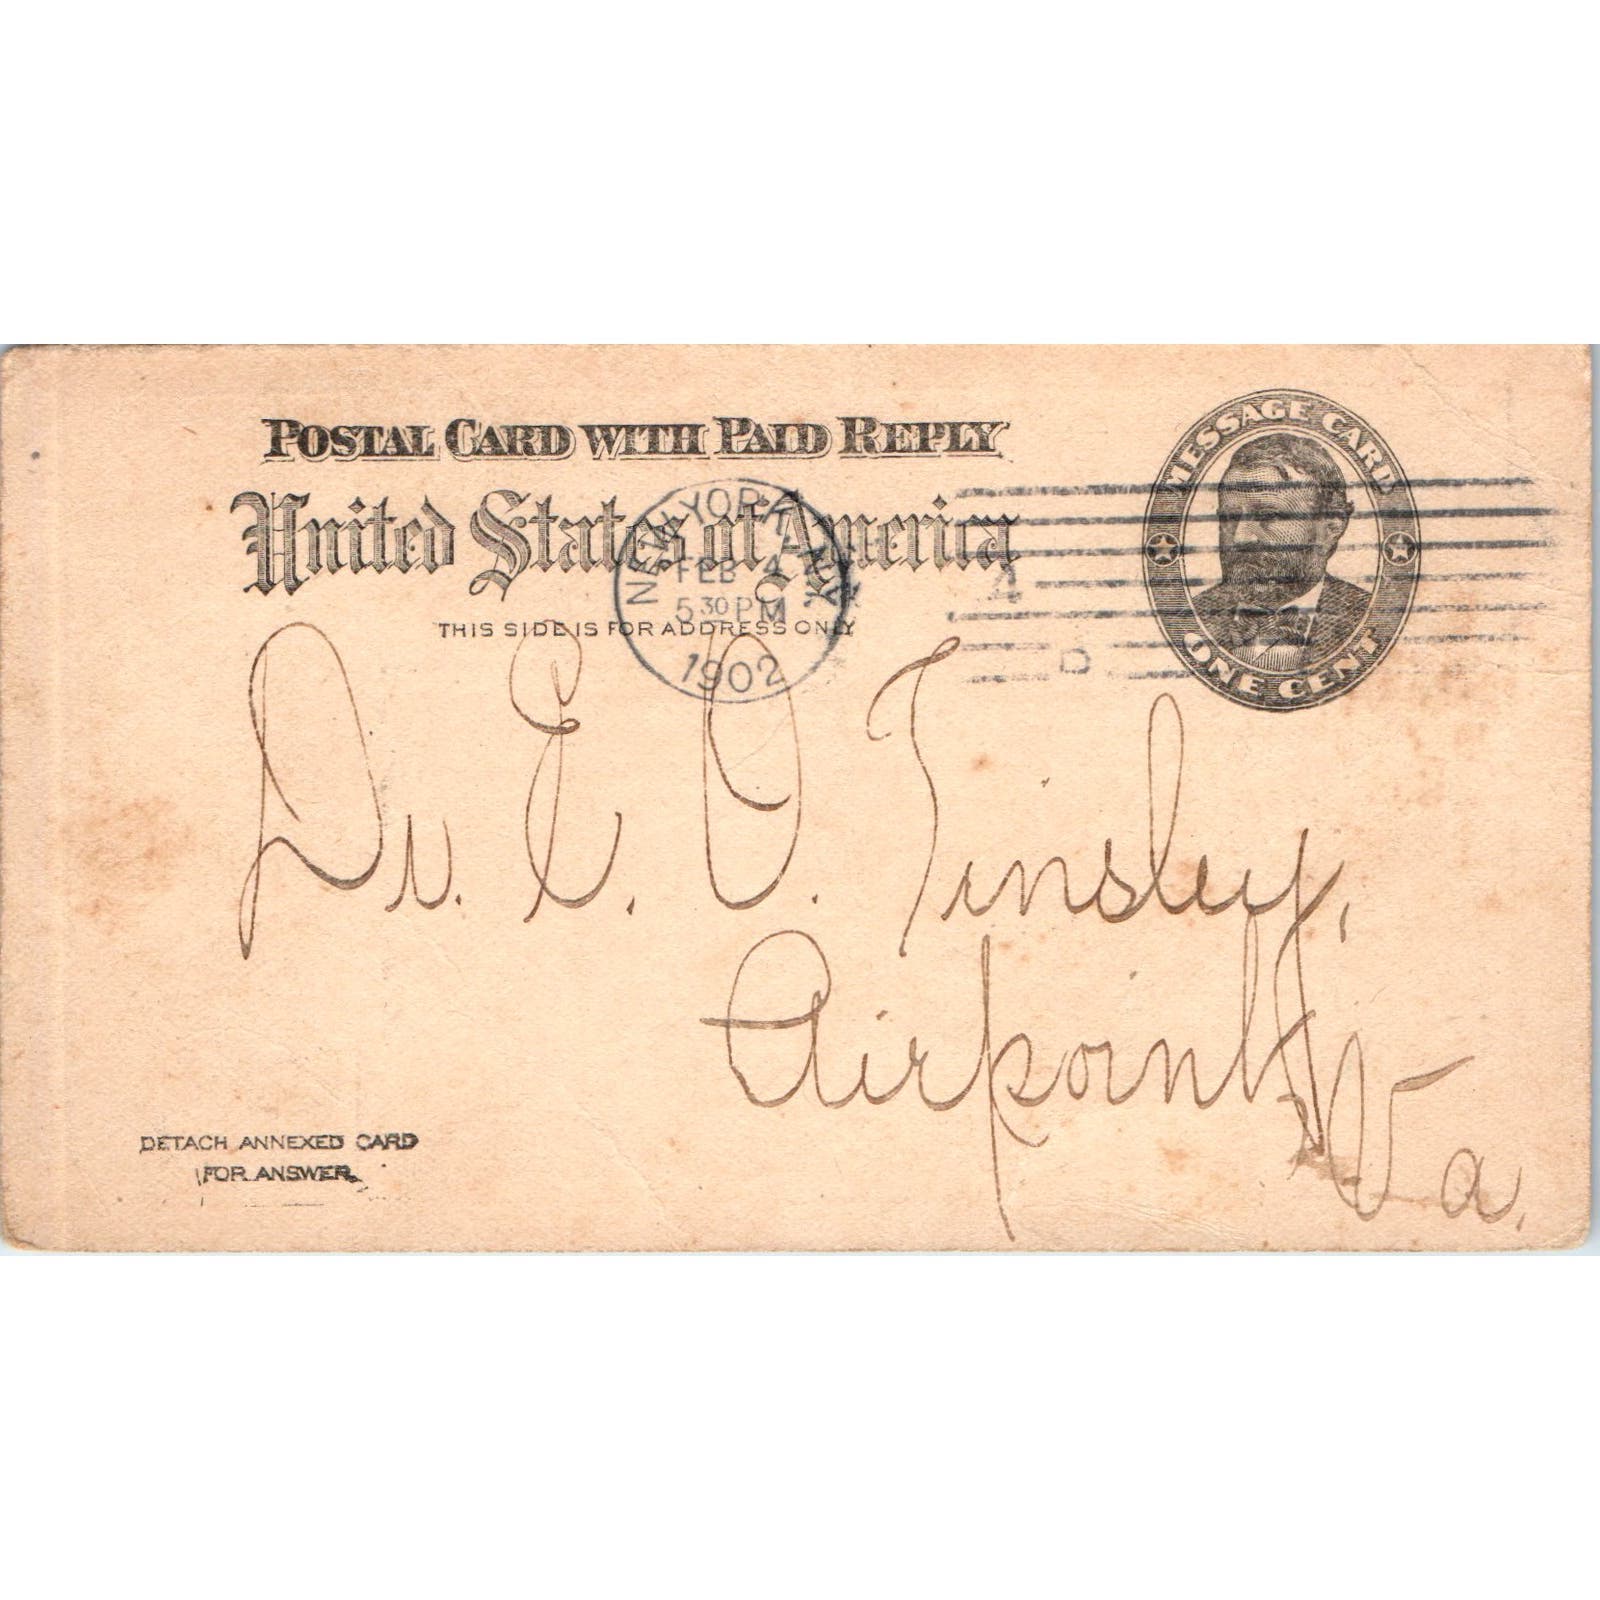 POSTAL CARD WITH PAID REPLY
United States of America
THIS SIDE IS FOR ADDRESS ONLY
MESSAGE CARD
ONE CENT
NEW YORK, N.Y.
FEB 4
5 30 PM
1902
4
D
Dr. E. O. Tinsley,
Airpoint,
Va.
DETACH ANNEXED CARD
FOR ANSWER.